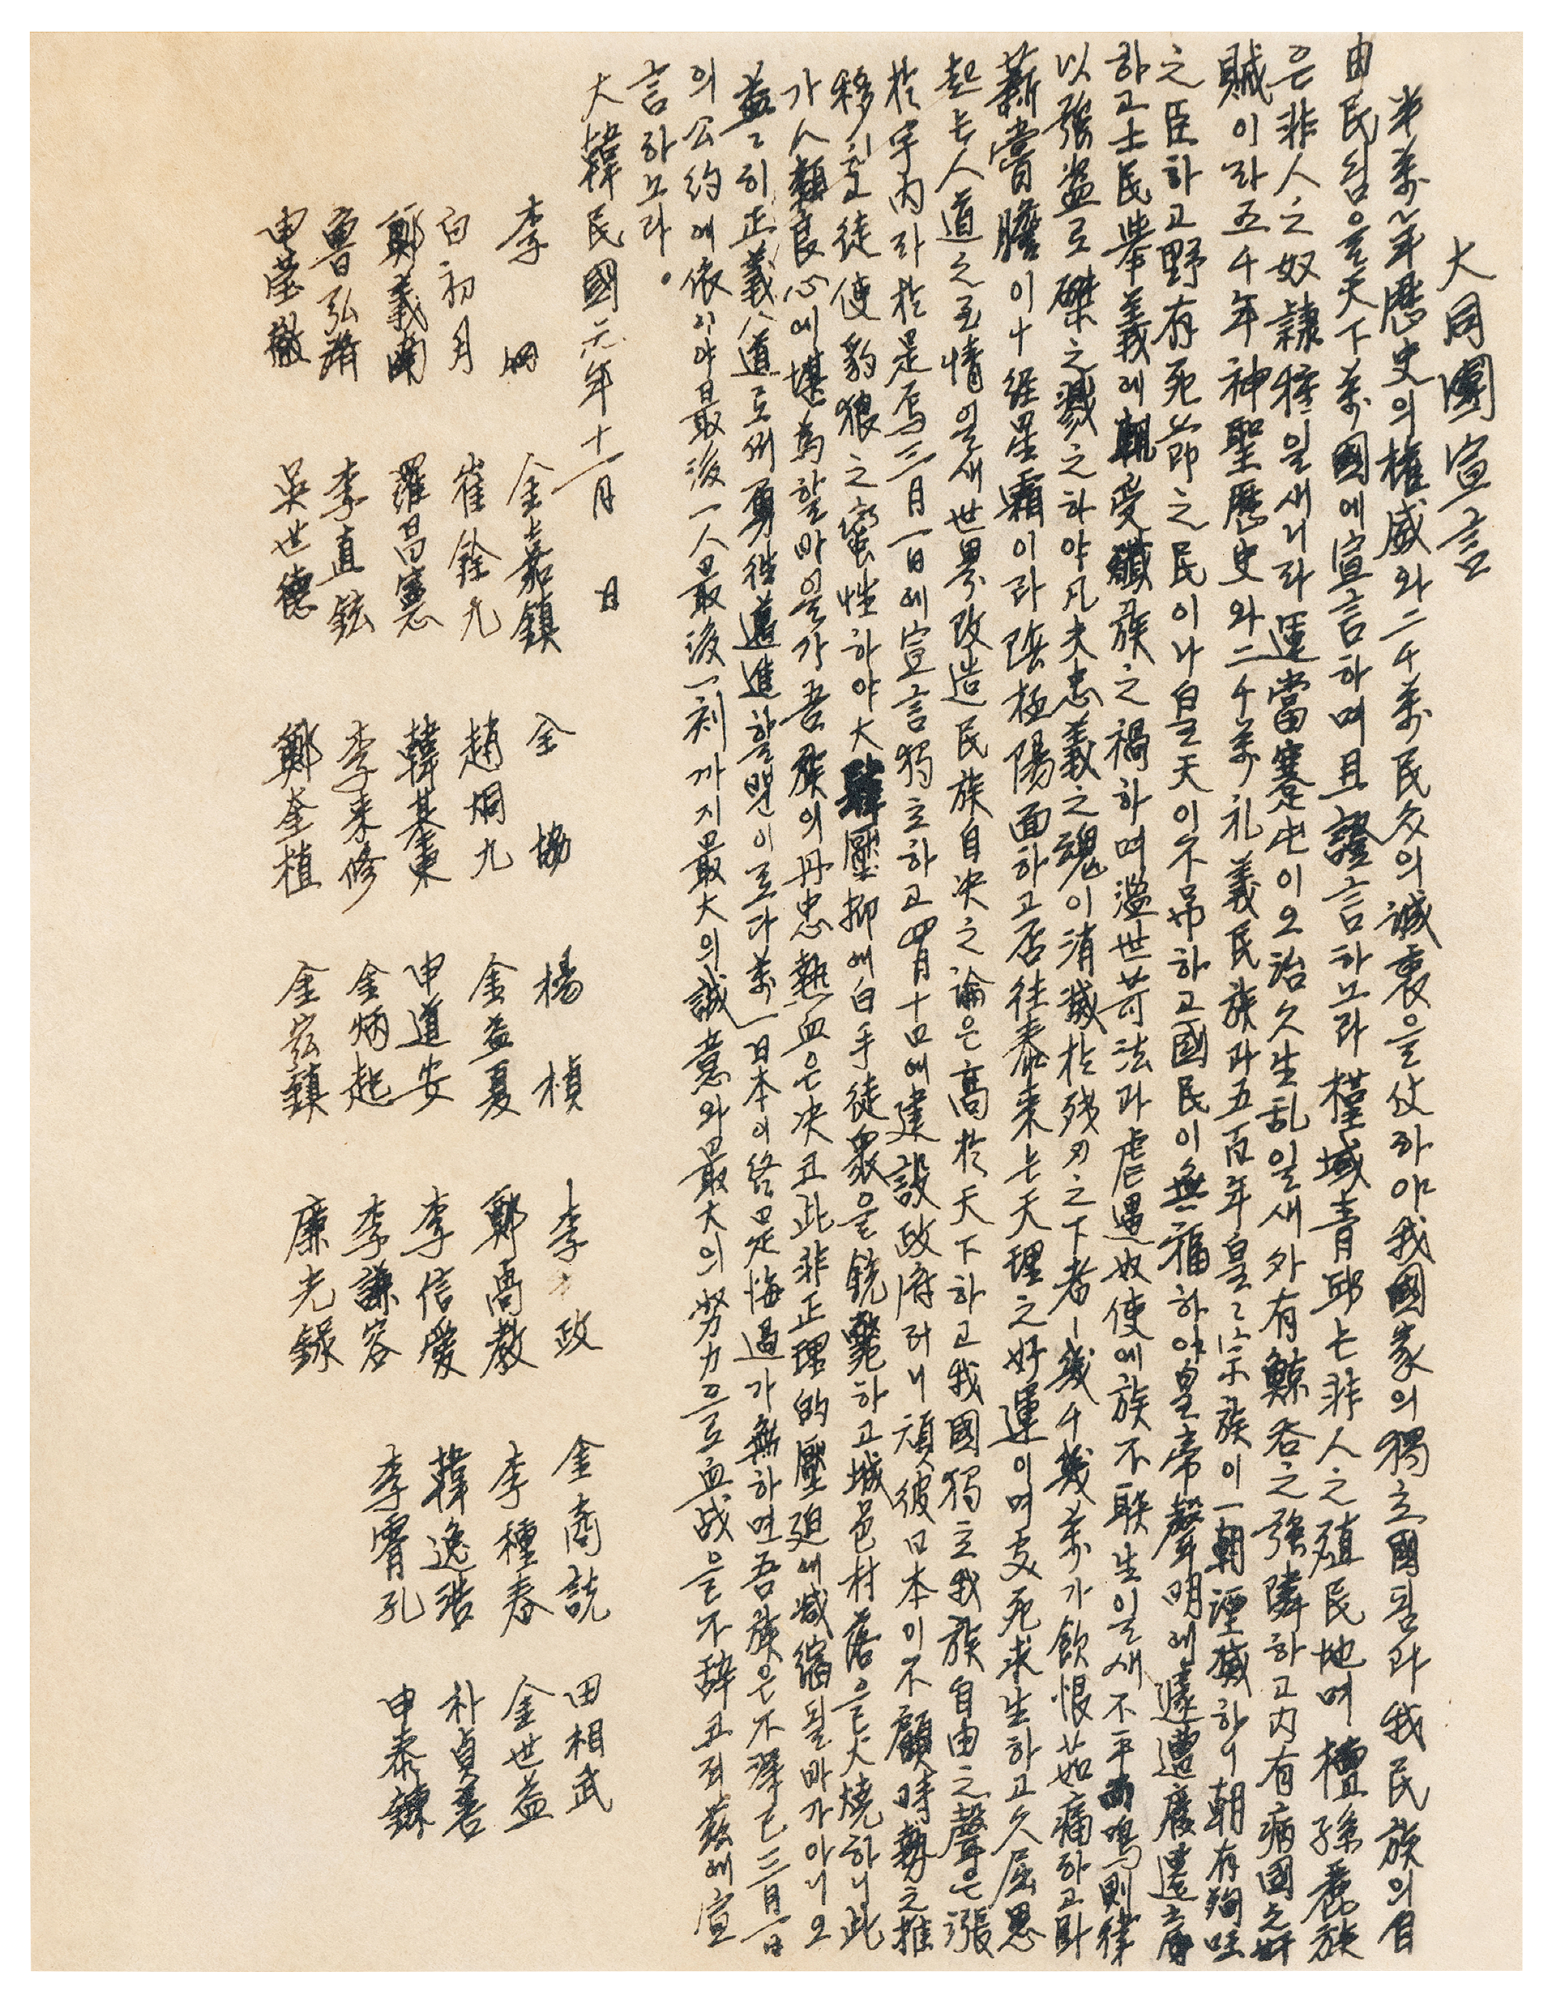 大同團宣言
半萬年歷史의權威와二千萬民衆의誠衷을仗하야我國家의獨立國됨과我民族의自
由民됨을天下萬國에宣言하며且證言하노라槿域靑邱는非人之殖民地며檀孫麗族
은非人之奴隷種일새니라運當蹇屯이오治久生乱일새外有鯨呑之强隣하고内有病國之奸
賊이라五千年神聖歷史와二千萬礼義民族과五百年皇々宗族이一朝湮滅하니朝有殉
之臣하고野有死節之民이나皇天이不吊하고國民이無福하야皇帝聲明에遽遭廢遷之辱
하고士民擧義에輒受殲族之禍하며濫世苛法과虐遇奴使에族不聊生일새不平而鳴則律
以强盜로磔之戮之하야凡夫忠義之魂이消滅於残刃之下者ㅣ幾千幾萬가飮恨茹痛하고臥
薪嘗膽이十經星霜이라陰極陽面하고否往泰来는天理之好運이며支死求生하고久屈思
起는人道之至情일새世界改造民族自决之論은高於天下하고我國獨立我族自由之聲은漲
於宇内라於是焉三月一日에宣言獨立하고四月十日에建設政府러니頑彼日本이不顧時勢之推
移하고徒使豹狼之蠻性하야大韓壓抑에白手徒衆을銃斃하고城邑村落을火燒하니此
가人類良心에堪爲할바을가吾族의丹忠熱血은决코此非正理的壓廹에减縮될바가아니오
益々히正義人道로써勇往邁進할뿐이로다萬一日本이終是悔過가無하면吾族은不得已三月一日
의公約에依이야最後一人最後一刻까지最大의誠意와最大의努力으로血战을不辞코져玆에宣
言하노라。
大韓民國元年十一月　日
李　堈　金嘉鎭　全　協　楊　楨　李　政　金商説　田相武
白初月　崔銓九　趙炯九　金益夏　鄭高教　李種春　金世益
鄭義南　羅昌憲　韓基東　申道安　李信愛　韓逸浩　朴貞善
魯弘濟　李直鉉　李来修　金炳起　李謙容　李霄孔　申泰鍊
申瑩澈　吳世德　鄭奎植　金宏鎭　廉光錄